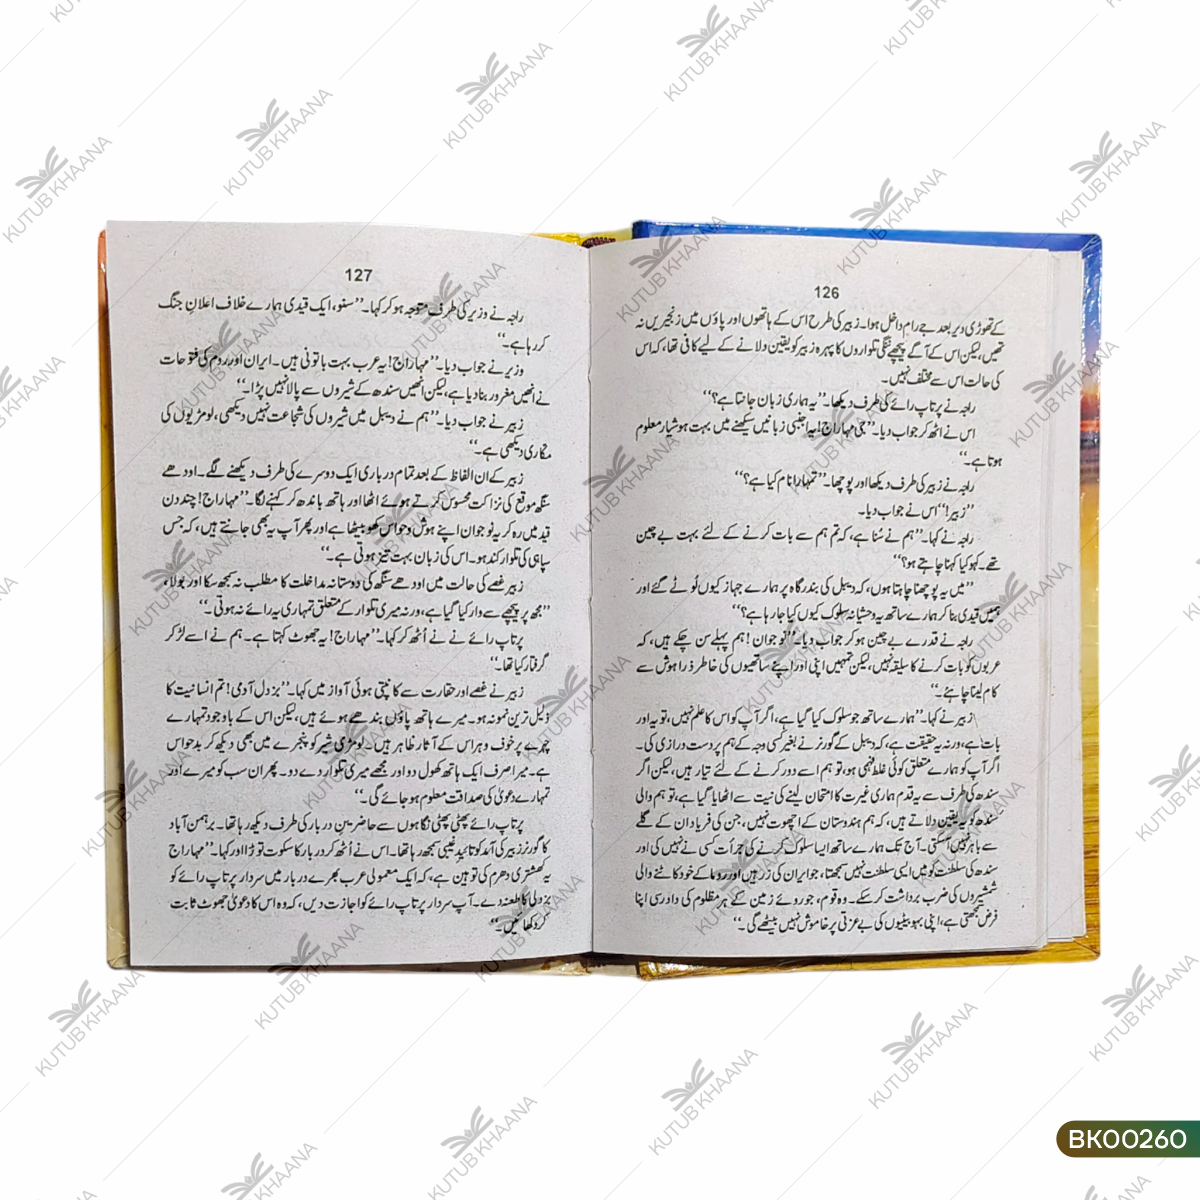 126
کے تھوڑی دیر بعد جے رام داخل ہوا۔ زبیر کی طرح اس کے ہاتھوں اور پاؤں میں زنجیریں نہ
تھیں، لیکن اس کے آگے پیچھے ننگی تلواروں کا پہرہ زبیر کو یقین دلانے کے لیے کافی تھا، کہ اس
کی حالت اس سے مختلف نہیں۔
راجہ نے پرتاپ رائے کی طرف دیکھا۔ ’’یہ ہماری زبان جانتا ہے؟‘‘
اس نے اٹھ کر جواب دیا۔ ’’جی مہاراج! یہ اجنبی زبانیں سیکھنے میں بہت ہوشیار معلوم
ہوتا ہے۔‘‘
راجہ نے زبیر کی طرف دیکھا اور پوچھا۔ ’’تمہارا نام کیا ہے؟‘‘
’’زبیر!‘‘ اس نے جواب دیا۔
راجہ نے کہا۔ ’’ہم نے سُنا ہے، کہ تم ہم سے بات کرنے کے لئے بہت بے چین
تھے۔ کہو کیا کہنا چاہتے ہو؟‘‘
’’میں یہ پوچھنا چاہتا ہوں، کہ دیبل کی بندرگاہ پر ہمارے جہاز کیوں لُوٹے گئے اور
ہمیں قیدی بنا کر ہمارے ساتھ یہ وحشیانہ سلوک کیوں کیا جا رہا ہے؟‘‘
راجہ نے قدرے بے چین ہو کر جواب دیا۔ ’’نوجوان! ہم پہلے سن چکے ہیں، کہ
عربوں کو بات کرنے کا سلیقہ نہیں، لیکن تمہیں اپنی اور اپنے ساتھیوں کی خاطر ذرا ہوش سے
کام لینا چاہئے۔‘‘
زبیر نے کہا۔ ’’ہمارے ساتھ جو سلوک کیا گیا ہے، اگر آپ کو اس کا علم نہیں، تو یہ اور
بات ہے، ورنہ یہ حقیقت ہے، کہ دیبل کے گورنر نے بغیر کسی وجہ کے ہم پر دست درازی کی۔
اگر آپ کو ہمارے متعلق کوئی غلط فہمی ہو، تو ہم اسے دور کرنے کے لئے تیار ہیں، لیکن اگر
سندھ کی طرف سے یہ قدم ہماری غیرت کا امتحان لینے کی نیت سے اٹھایا گیا ہے، تو ہم والی
سندھ کو یہ یقین دلاتے ہیں، کہ ہم ہندوستان کے اچھوت نہیں، جن کی فریاد ان کے گلے
سے باہر نہیں آسکتی۔ آج تک ہمارے ساتھ ایسا سلوک کرنے کی جرأت کسی نے نہیں کی اور
سندھ کی سلطنت کو میں ایسی سلطنت نہیں سمجھتا، جو ایران کی زرہیں اور روما کے خود کاٹنے والی
شمشیروں کی ضرب برداشت کر سکے۔ وہ قوم، جو روئے زمین کے ہر مظلوم کی دادرسی اپنا
فرض سمجھتی ہے، اپنی بہو بیٹیوں کی بے عزتی پر خاموش نہیں بیٹھے گی۔‘‘
127
راجہ نے وزیر کی طرف متوجہ ہو کر کہا۔ ’’سنو، ایک قیدی ہمارے خلاف اعلانِ جنگ
کر رہا ہے۔‘‘
وزیر نے جواب دیا۔ ’’مہاراج! یہ عرب بہت باتونی ہیں۔ ایران اور روم کی فتوحات
نے انھیں مغرور بنا دیا ہے، لیکن انھیں سندھ کے شیروں سے پالا نہیں پڑا۔‘‘
زبیر نے جواب دیا۔ ’’ہم نے دیبل میں شیروں کی شجاعت نہیں دیکھی، لومڑیوں کی
مکاری دیکھی ہے۔‘‘
زبیر کے ان الفاظ کے بعد تمام درباری ایک دوسرے کی طرف دیکھنے لگے۔ اودھے
سنگھ موقع کی نزاکت محسوس کرتے ہوئے اٹھا اور ہاتھ باندھ کر کہنے لگا۔ ’’مہاراج! چند دن
قید میں رہ کر یہ نوجوان اپنے ہوش و حواس کھو بیٹھا ہے اور پھر آپ یہ بھی جانتے ہیں، کہ جس
سپاہی کی تلوار کند ہو۔ اس کی زبان بہت تیز ہوتی ہے۔‘‘
زبیر غصے کی حالت میں اودھے سنگھ کی دوستانہ مداخلت کا مطلب نہ سمجھ سکا اور بولا،
’’مجھ پر پیچھے سے وار کیا گیا ہے، ورنہ میری تلوار کے متعلق تمہاری یہ رائے نہ ہوتی۔‘‘
پرتاپ رائے نے نے اُٹھ کر کہا۔ ’’مہاراج! یہ جھوٹ کہتا ہے۔ ہم نے اسے لڑ کر
گرفتار کیا تھا۔‘‘
زبیر نے غصے اور حقارت سے کانپتی ہوئی آواز میں کہا۔ ’’بزدل آدمی! تم انسانیت کا
ذلیل ترین نمونہ ہو۔ میرے ہاتھ پاؤں بندھے ہوئے ہیں، لیکن اس کے باوجود تمہارے
چہرے پر خوف و ہراس کے آثار ظاہر ہیں۔ لومڑی شیر کو پنجرے میں بھی دیکھ کر بدحواس
ہے۔ میرا صرف ایک ہاتھ کھول دو اور مجھے میری تلوار دے دو۔ پھر ان سب کو میرے اور
تمہارے دعویٰ کی صداقت معلوم ہو جائے گی۔‘‘
پرتاپ رائے پھٹی پھٹی نگاہوں سے حاضرینِ دربار کی طرف دیکھ رہا تھا۔ برہمن آباد
کا گورنر زبیر کی آمد کو تائید غیبی سمجھ رہا تھا۔ اس نے اُٹھ کر دربار کا سکوت توڑا اور کہا۔ ’’مہاراج
یہ کھشتری دھرم کی توہین ہے، کہ ایک معمولی عرب بھرے دربار میں سردار پرتاپ رائے کو
بزدلی کا طعنہ دے۔ آپ سردار پرتاپ رائے کو اجازت دیں، کہ وہ اس کا دعویٰ جھوٹ ثابت
کر دکھائیں۔‘‘
KUTUB KHAANA
BK00260